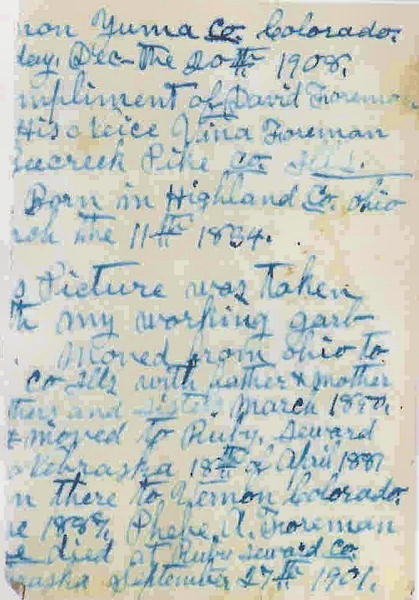 non Yuma Co. Colorado.
day, Dec- the 20th 1908.
mpliment of David Foreman
His Neice Vina Foreman
eecreek Pike Co. Ills.
Born in Highland Co. Ohio
rch the 11th 1834.
s Picture was taken
th my working garb
Moved from Ohio to
Co Ills with father & mother
thers and sisters March 1850.
& moved to Ruby, Seward
o Nebraska 18th of April 1887
m there to Vernon Colorado.
ne 1888, Phebe A. Foreman
e died at Ruby Seward Co.
raska September 27th 1901.